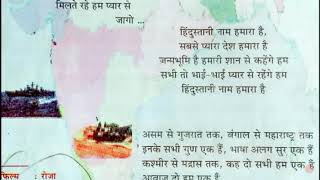 मिलते रहे हम प्यार से
जागो ...
हिंदुस्तानी नाम हमारा है,
सबसे प्यारा देश हमारा है
जन्मभूमि है हमारी शान से कहेंगे हम
सभी तो भाई-भाई प्यार से रहेंगे हम
हिंदुस्तानी नाम हमारा है
असम से गुजरात तक, बंगाल से महाराष्ट्र तक
इनके सभी गुण एक हैं, भाषा अलग सुर एक हैं
कश्मीर से मद्रास तक, कह दो सभी हम एक हैं
आवाज दो हम एक हैं
फिल्म : रोजा